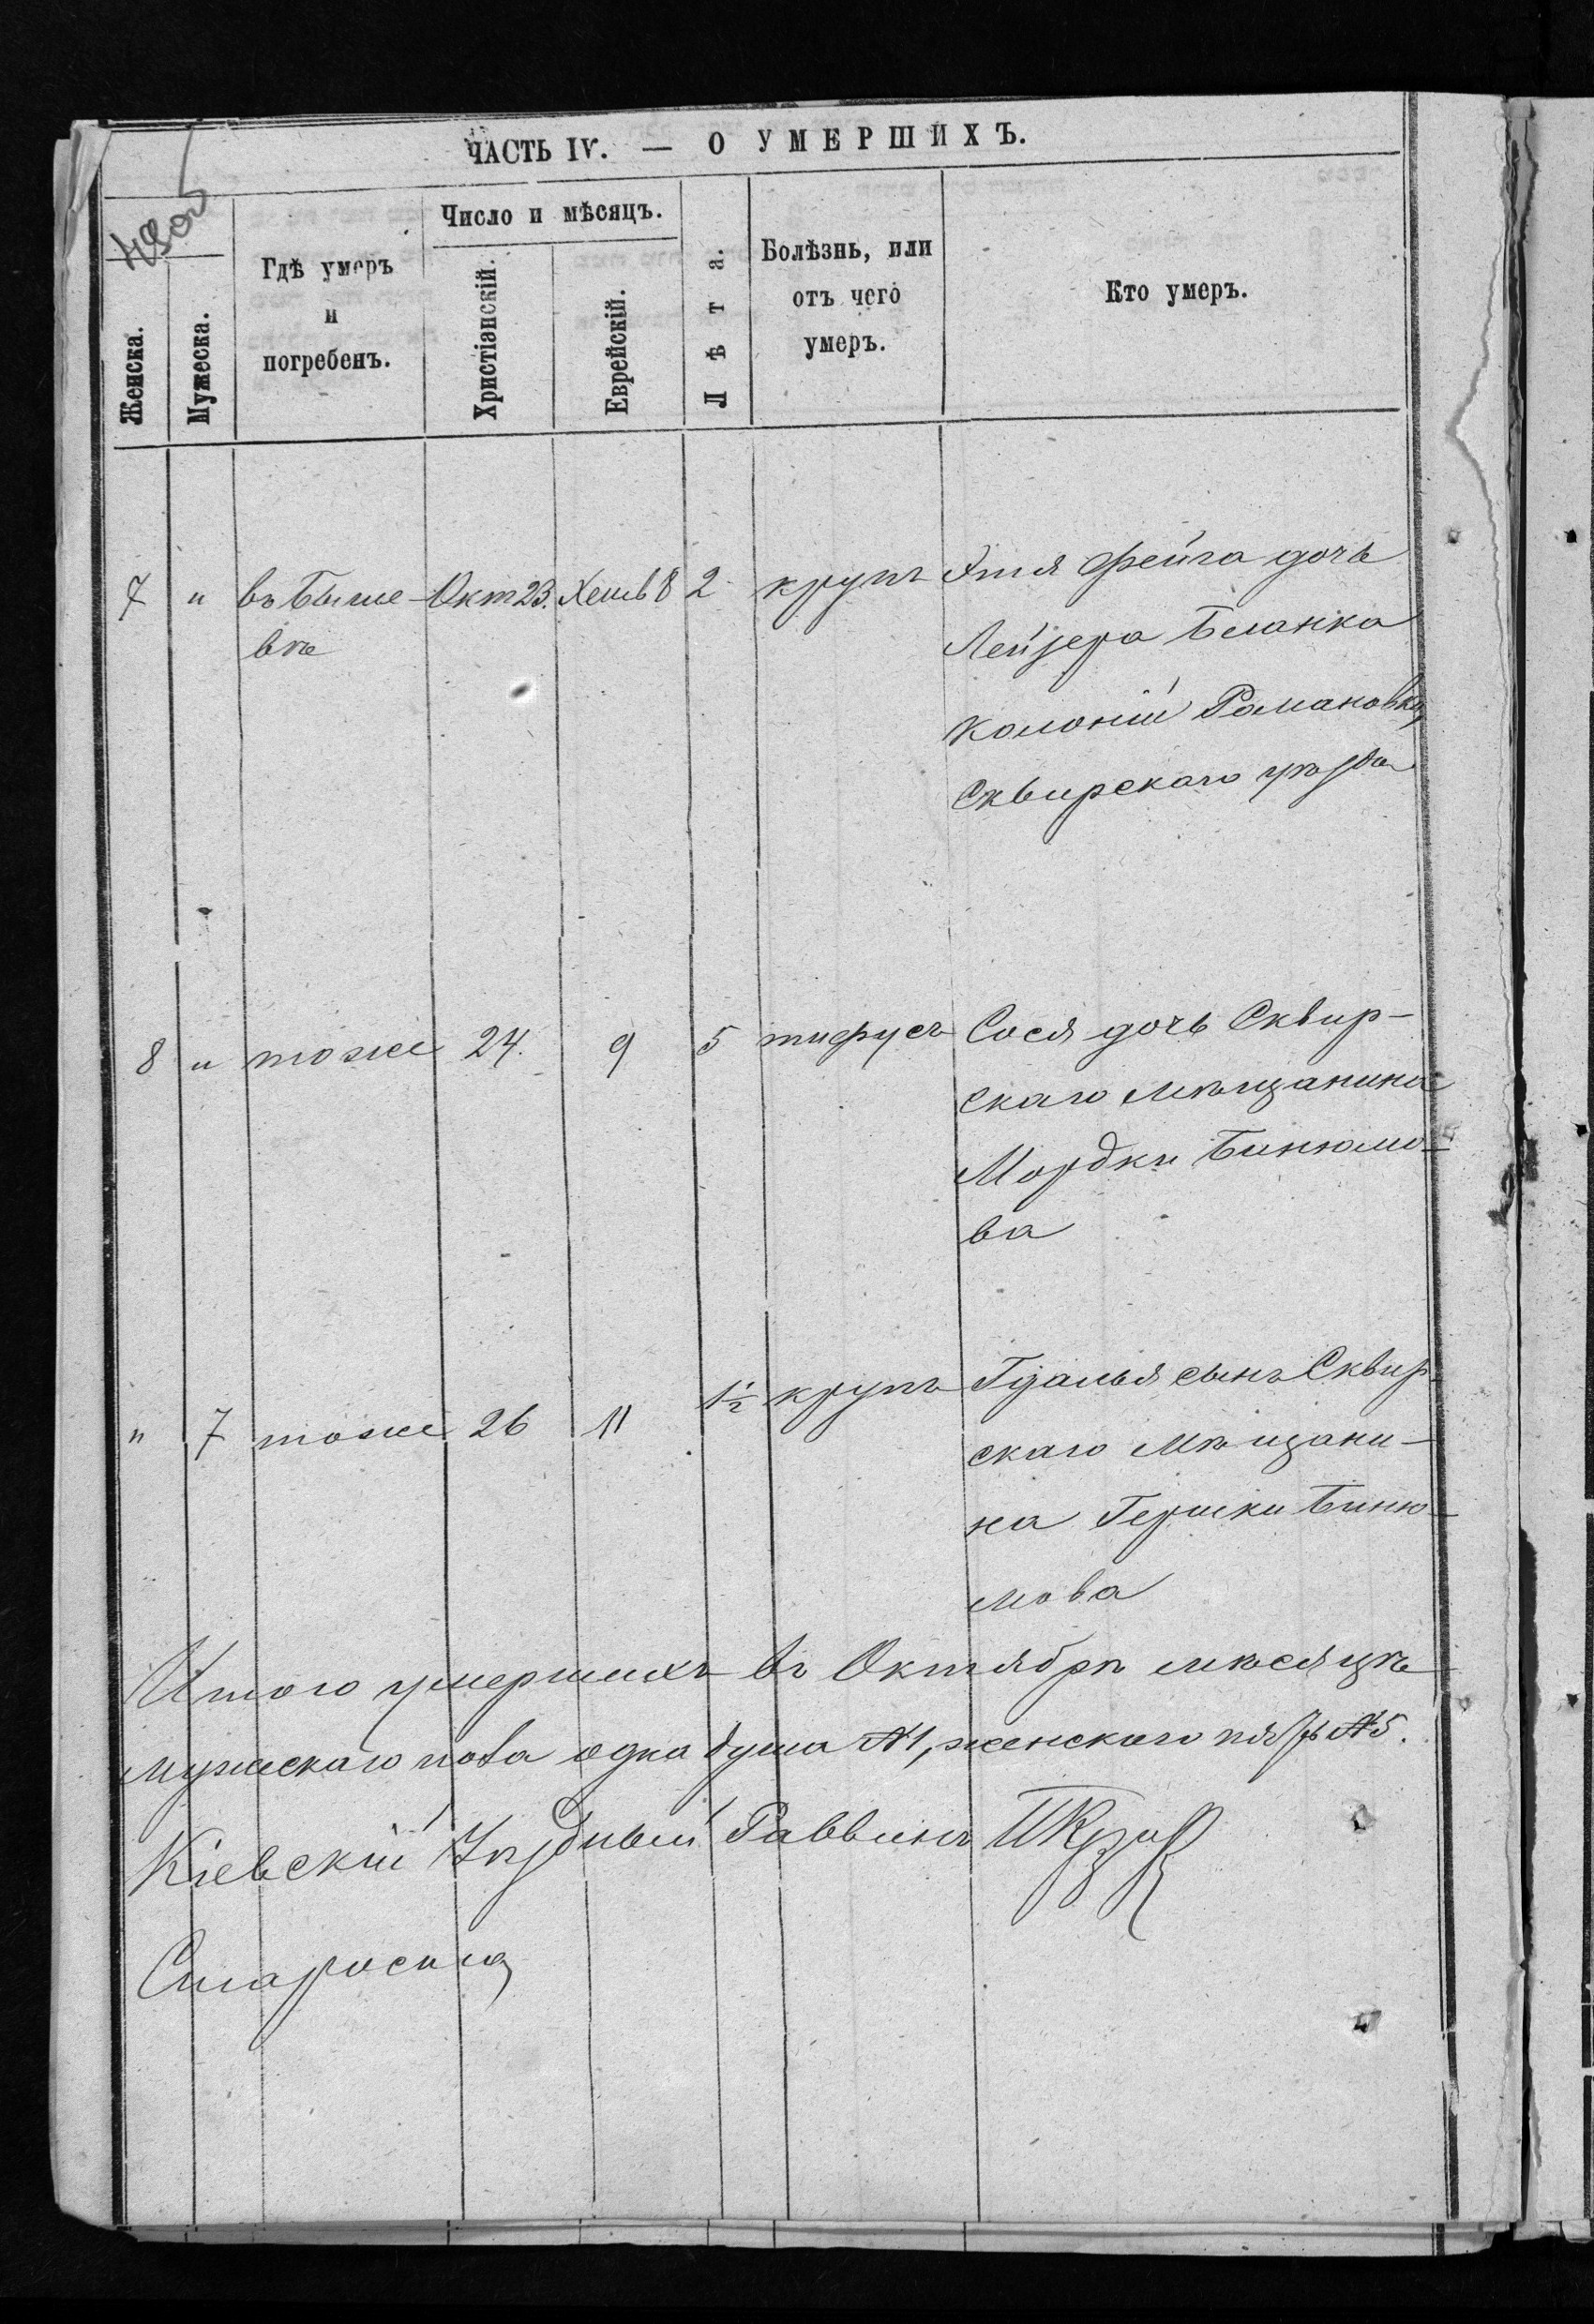 ЧАСТЬ IV. — О УМЕРШИХЪ.
Женска.
Мужеска.
Гдѣ умеръ и погребенъ.
Число и мѣсяцъ.
Христіанскій.
Еврейскій.
Лѣта.
Болѣзнь, или отъ чего умеръ.
Кто умеръ.
7 " въ Быше- Окт 23. Хешв 8 2 крупъ Этя Фейга дочь
вѣ Лейзера Беланка
колоніи Романовки,
Сквирскаго уѣзда
8 " тоже 24. 9 5 тифусъ Сося дочь Сквир-
скаго мѣщанина
Мордки Бинюмо-
ва
" 7 тоже 26 11 1½ крупъ Гдалья сынъ Сквир-
скаго мѣщани-
на Гершки Биню-
мова
Итого умершихъ въ Октябрѣ мѣсяцѣ
мужескаго пола одна душа №1, женскаго пять №5.
Кіевскій Уѣздный Раввинъ
Староста